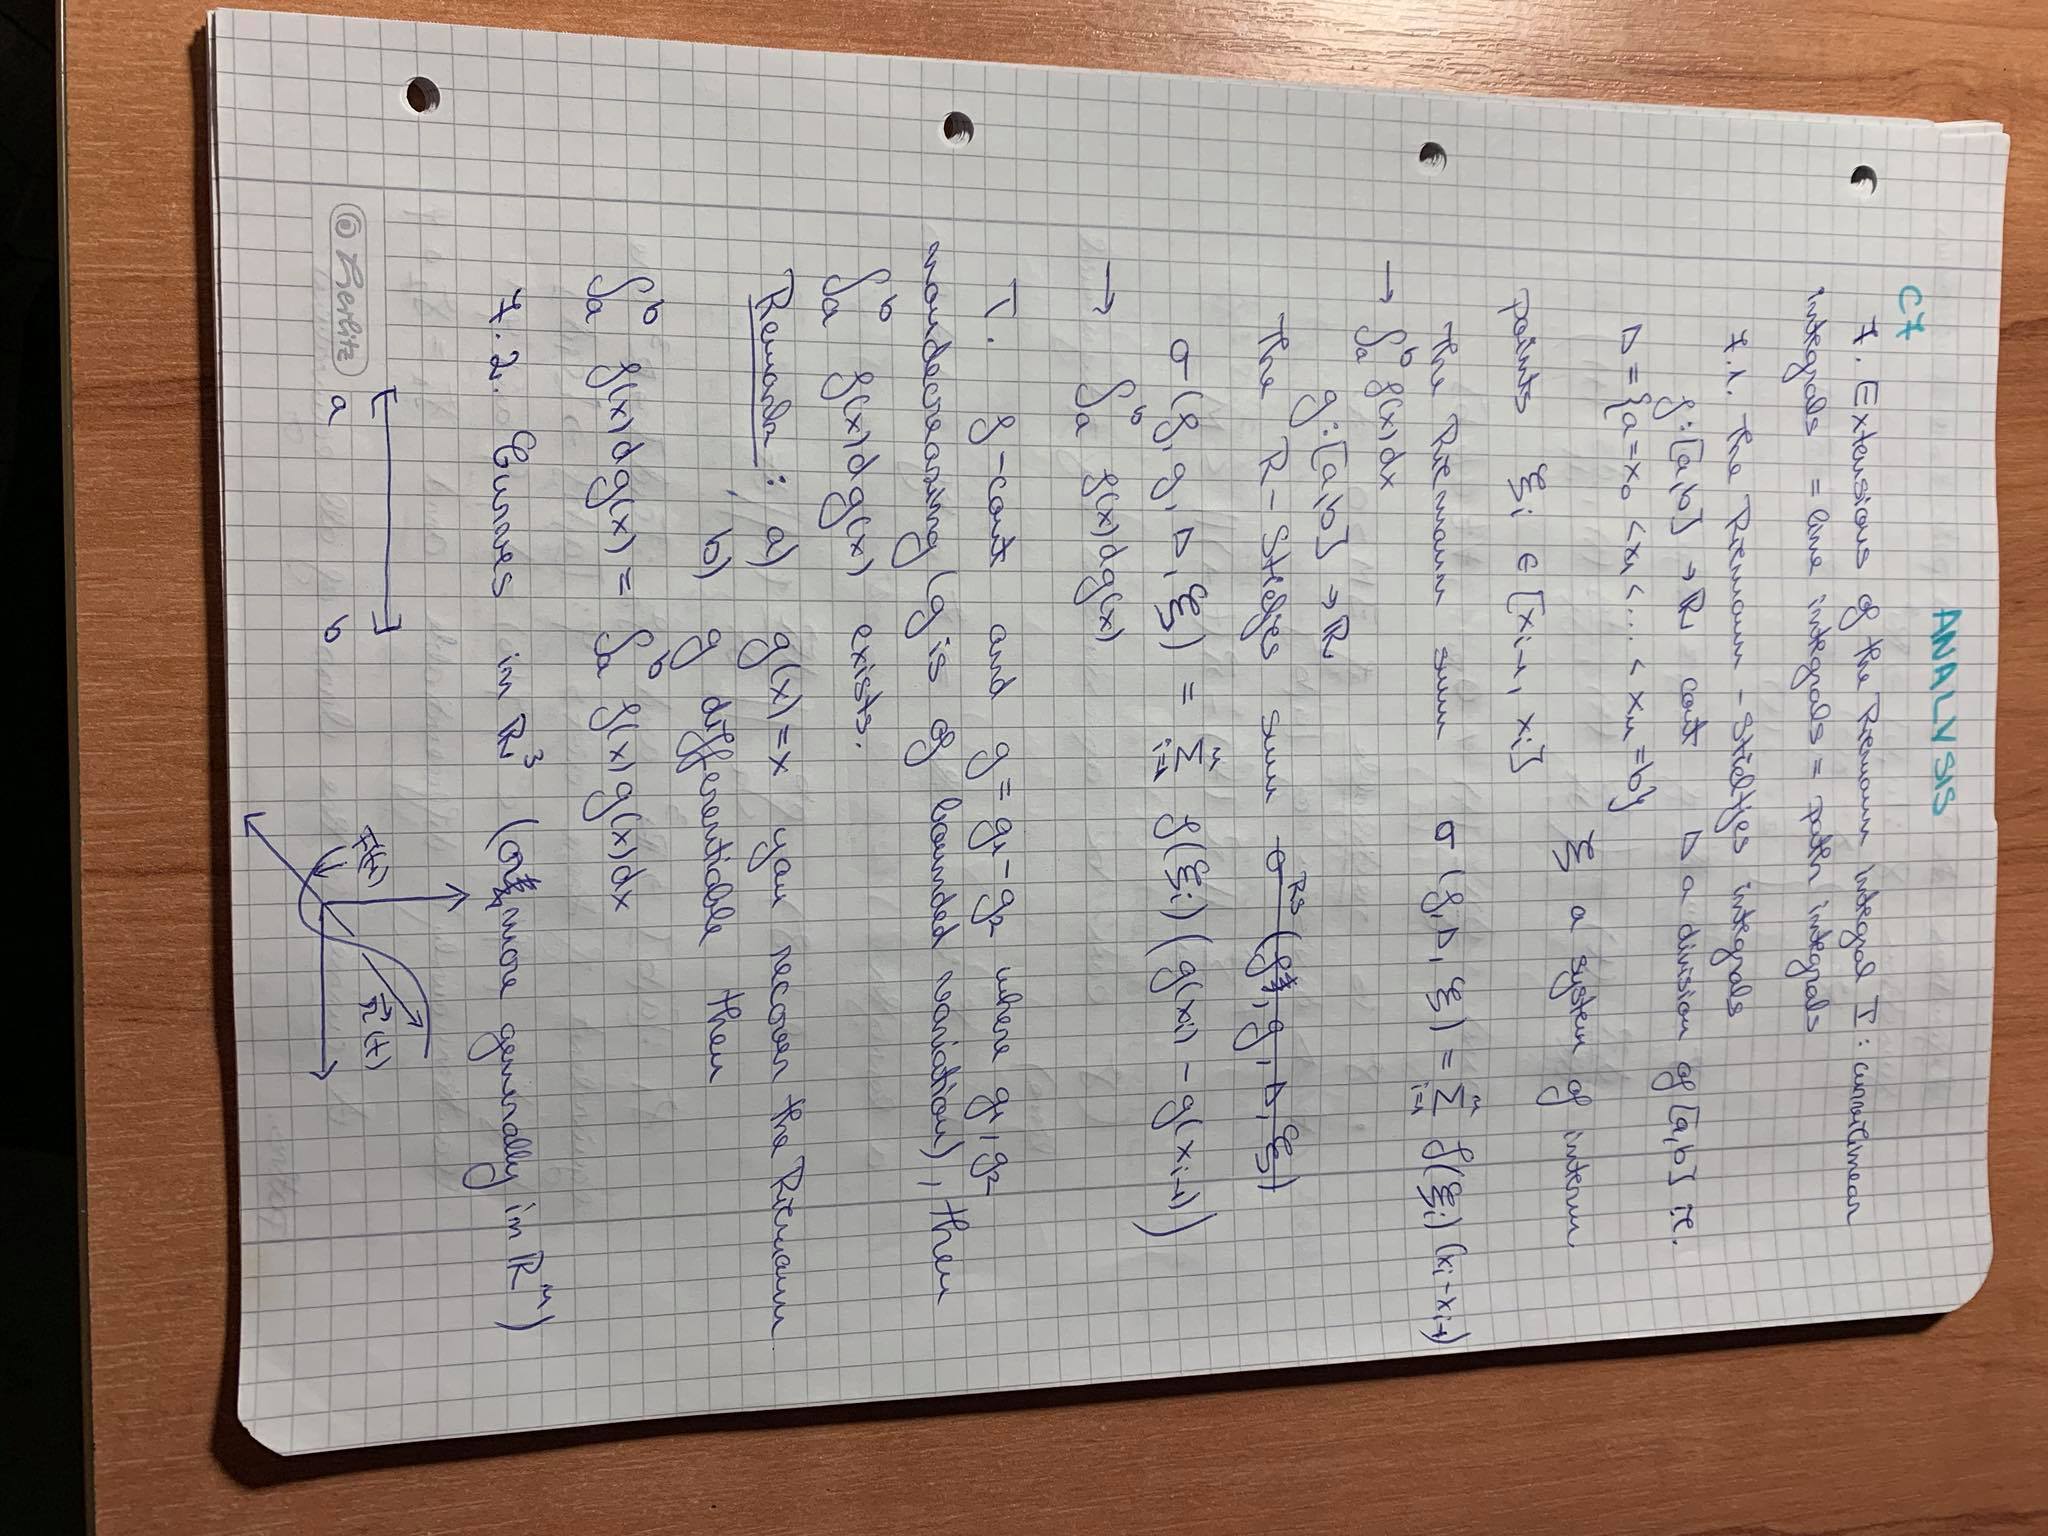 ANALYSIS
C7
7. Extensions of the Riemann integral I: curvilinear
integrals = line integrals = path integrals
7.1. The Riemann - Stieltjes integrals
f: [a,b] → ℝ cont Δ a division of [a,b] i.e.
Δ = {a = x₀ < x₁ < ... < xₙ = b}
ξ a system of interm
points ξᵢ ∈ [xᵢ₋₁, xᵢ]
The Riemann sum σ(f, Δ, ξ) = Σⁿᵢ₌₁ f(ξᵢ)(xᵢ - xᵢ₋₁)
→ ∫ₐᵇ f(x)dx
g: [a,b] → ℝ
The R-Stieltjes sum
σ(f, g, Δ, ξ) = Σⁿᵢ₌₁ f(ξᵢ)(g(xᵢ) - g(xᵢ₋₁))
→ ∫ₐᵇ f(x)dg(x)
T. f-cont and g = g₁ - g₂ where g₁, g₂
nondecreasing (g is of bounded variation), then
∫ₐᵇ f(x)dg(x) exists.
Remark: a) g(x) = x you recover the Riemann
b) g differentiable then
∫ₐᵇ f(x)dg(x) = ∫ₐᵇ f(x)g(x)dx
7.2. Curves in ℝ³ (or more generally in ℝⁿ)
r⃗(t)
a b
herlitz